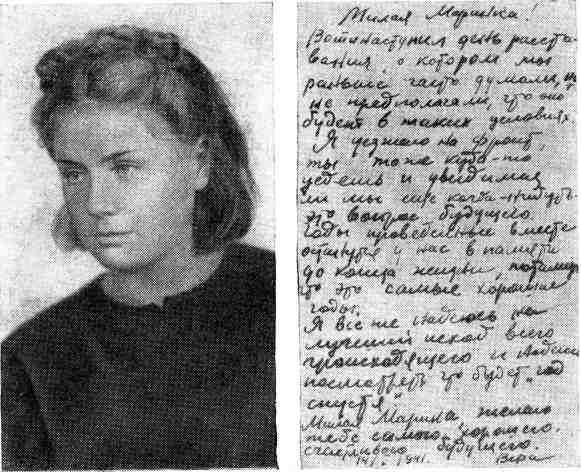 Милая Маринка!
Вот и наступил день расста-
вания, о котором мы
раньше часто думали, но
не предполагали, что он
будет в таких условиях.
Я уезжаю на фронт,
ты тоже куда-то
уедешь и увидимся
ли мы еще когда-нибудь
это вопрос будущего.
Годы, проведенные вместе
останутся у нас в памяти
до конца жизни, потому
что это самые хорошие
годы.
Я все же надеюсь на
лучший исход всего
происходящего и
посмотреть что будет "год
спустя"
Милая Марина желаю
тебе самого хорошего,
счастливого будущего.
1941. Вера